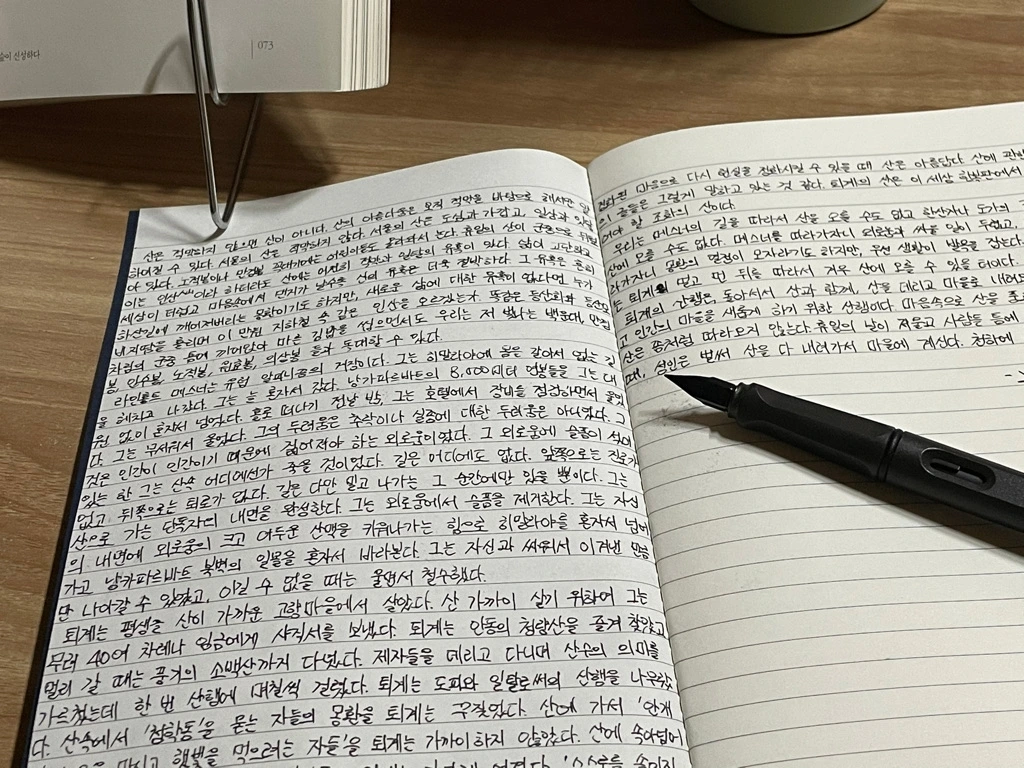 신성하다
073
산은 적막하지 않으면 산이 아니다. 산의 아름다움은 오직 적막을 바탕으로 해서만
하여질 수 있다. 서울의 산은 적막하지 않다. 서울의 산은 도심과 가깝고, 일상과
있다. 노적봉이나 만경봉 꼭대기에는 어린이들도 올라와서 논다. 휴일의 산이 군중으로
이는 인산 이라 하더라도 산에는 여전히 일탈의 유혹이 있다. 삶이 고단하고
세상이 더럽고 마음속에서 먼지가 날수록 산의 유혹은 더욱 절박하다. 그 유혹은 흔히
하산길에 깨어져버리는 몽환이기도 하지만, 새로운 삶에 대한 유혹이 없다면 누가
흘리며 이 만원 지하철 같은 인산을 오르겠는가. 똑같은 등산화와
차림의 군중 틈에 끼어앉아 마른 김밥을 씹으면서도 우리는 저 빛나는 백운대, 만경
봉, 인수봉, 노적봉, 원효봉, 의상봉 들과 독대할 수 있다.
라인홀트 메스너는 유럽 알피니즘의 거장이다. 그는 히말라야에 몸을 갈아서 없는 길
을 헤치고 나갔다. 그는 늘 혼자서 갔다. 낭가파르바트의 8,000미터 연봉들을 그는 대
원 없이 혼자서 넘었다. 홀로 떠나기 전날 밤, 그는 호텔에서 장비를 점검하면서 울었
다. 그는 무서워서 울었다. 그의 두려움은 추락이나 실종에 대한 두려움은 아니었다. 그
것은 인간이 인간이기 때문에 짊어져야 하는 외로움이었다. 그 외로움에 슬픔이 섞여
있는 한 그는 산속 어디에선가 죽을 것이었다. 길은 어디에도 없다. 앞쪽으로는 진로가
없고 뒤쪽으로는 퇴로가 없다. 길은 다만 밀고 나가는 그 순간에만 있을 뿐이다. 그는
산으로 가는 단독자의 내면을 완성한다. 그는 외로움에서 슬픔을 제거한다. 그는 자신
의 내면에 외로움의 크고 어두운 산맥을 키워나가는 힘으로 히말라야를 혼자서 넘어
가고 낭가파르바트 북벽의 일몰을 혼자서 바라본다. 그는 자신과 싸워서 이겨낸 만큼
만 나아갈 수 있었고, 이길 수 없을 때는 울면서 철수했다.
퇴계는 평생을 산이 가까운 고향마을에서 살았다. 산 가까이 살기 위하여 그는
무려 40여 차례나 임금에게 사직서를 보냈다. 퇴계는 안동의 청량산을 즐겨 찾았고
멀리 갈 때는 풍기의 소백산까지 다녔다. 제자들을 데리고 다니며 산수의 의미를
가르쳤는데 한 번 산행에 며칠씩 걸렸다. 퇴계는 도피와 일탈로써의 산행을 나무랐
다. 산속에서 '청학동'을 묻는 자들의 몽환을 퇴계는 꾸짖었다. 산에 가서 '안개
마시고 햇볕을 먹으려는 자들'을 퇴계는 가까이하지 않았다. 산에 속아넘어
마음으로 다시 현실을 정화시킬 수 있을 때 산은 아름답다. 산에 관한
글들은 그렇게 말하고 있는 것 같다. 퇴계의 산은 이 세상 한복판에서
할 조화의 산이다.
우리는 메스너의 길을 따라서 산을 오를 수도 없고 한산자나 도가의
산에 오를 수도 없다. 메스너를 따라가자니 외로움과 싸울 일이 두렵고,
가자니 몽환의 열정이 모자라기도 하지만, 우선 생활이 발목을 잡는다.
는 퇴계 믿고 먼 뒤를 따라서 겨우 산에 오를 수 있을 터이다.
퇴계의 산행은, 돌아서서 산과 함께, 산을 데리고 마을로 내려오
인간의 마을을 새롭게 하기 위한 산행이다. 마음속으로 산을
산은 좀처럼 따라오지 않는다. 휴일의 날이 저물고 사람들 틈에
때, 성인은 벌써 산을 다 내려가서 마을에 계신다. 천하에